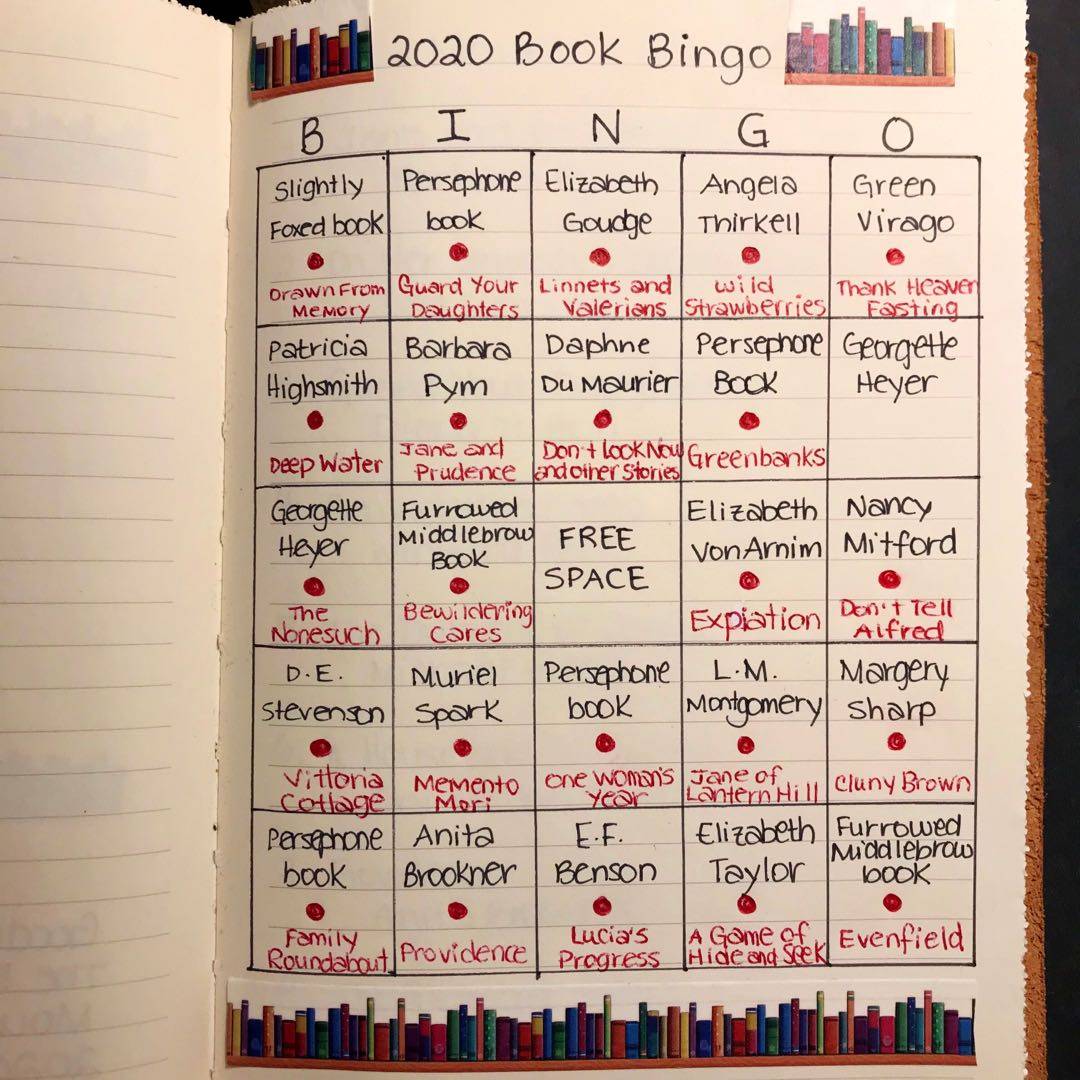 2020 Book Bingo
B I N G O
Slightly
Foxed book
Drawn From
Memory
Persephone
book
Guard Your
Daughters
Elizabeth
Goudge
Linnets and
Valerians
Angela
Thirkell
Wild
Strawberries
Green
Virago
Thank Heaven
Fasting
Patricia
Highsmith
Deep Water
Barbara
Pym
Jane and
Prudence
Daphne
Du Maurier
Don't Look Now
and other Stories
Persephone
Book
Greenbanks
Georgette
Heyer
Georgette
Heyer
The
Nonesuch
Furrowed
Middlebrow
Book
Bewildering
Cares
FREE
SPACE
Elizabeth
Von Arnim
Expiation
Nancy
Mitford
Don't Tell
Alfred
D.E.
Stevenson
Vittoria
Cottage
Muriel
Spark
Memento
Mori
Persephone
book
One Woman's
Year
L.M.
Montgomery
Jane of
Lantern Hill
Margery
Sharp
Cluny Brown
Persephone
book
Family
Roundabout
Anita
Brookner
Providence
E.F.
Benson
Lucia's
Progress
Elizabeth
Taylor
A Game of
Hide and Seek
Furrowed
Middlebrow
book
Evenfield